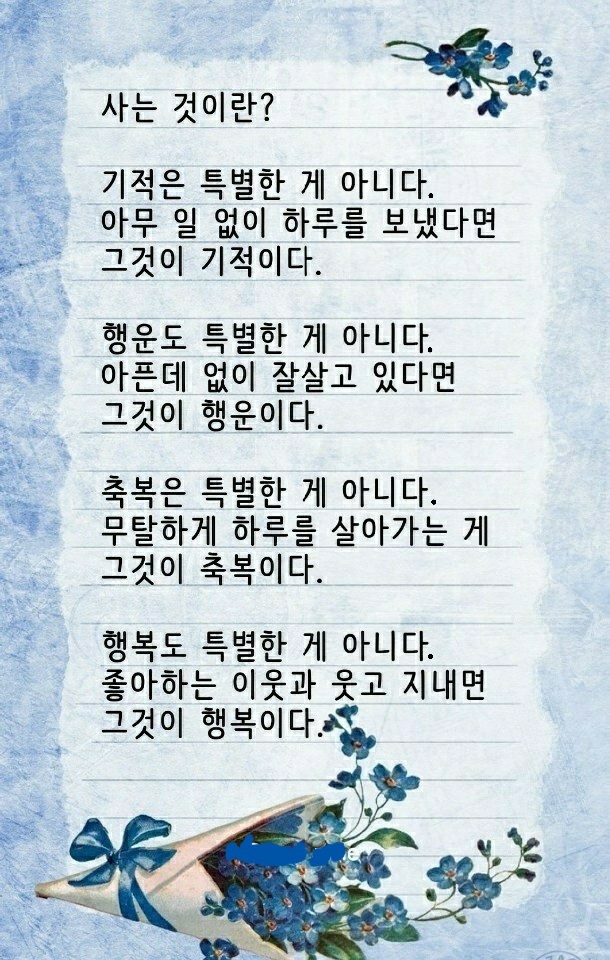 사는 것이란?
기적은 특별한 게 아니다.
아무 일 없이 하루를 보냈다면
그것이 기적이다.
행운도 특별한 게 아니다.
아픈데 없이 잘살고 있다면
그것이 행운이다.
축복은 특별한 게 아니다.
무탈하게 하루를 살아가는 게
그것이 축복이다.
행복도 특별한 게 아니다.
좋아하는 이웃과 웃고 지내면
그것이 행복이다.